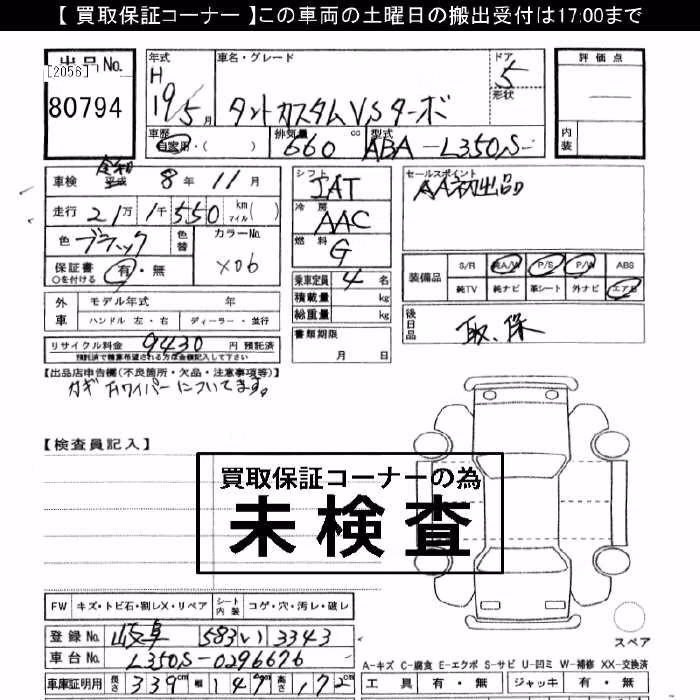 【 買取保証コーナー 】この車両の土曜日の搬出受付は17:00まで
出品No.
[2056]
80794
年式
H
19 5月
車名・グレード
タントカスタムVSターボ
ドア
5
形状
評価点
内装
車歴
自家用・( )
排気量
660 cc
型式
ABA-L350S-
車検 令和 平成 8年 11月
走行 21万 1千 550 km マイル ( )
色 ブラック
色替
カラーNo.
X06
保証書 有・無
○を付ける
外車
モデル年式 年
ハンドル 左・右 ディーラー・並行
リサイクル料金 9430 円 預託済
預託済で精算希望される方は金額記入して下さい
シフト
IAT
冷房
AAC
燃料
G
乗車定員 4 名
積載量 kg
総重量 kg
書類期限
月 日
セールスポイント
AA初出品
装備品
S/R 純A/W P/S P/W ABS
純TV 純ナビ 革シート 外ナビ エアB
後日品
取、保
【出品店申告欄(不良箇所・欠品・注意事項等)】
【検査員記入】
買取保証コーナーの為
未検査
FW キズ・トビ石・割レX・リペア シート内装 コゲ・穴・汚レ・破レ
登録No. 岐阜 583 い 3343
車台No. L350S-0296676
車庫証明用 長さ 339cm 幅 147cm 高さ 172cm
スペア
A-キズ C-腐食 E-エクボ S-サビ U-凹ミ W-補修 XX-交換済
工具 有・無 ジャッキ 有・無